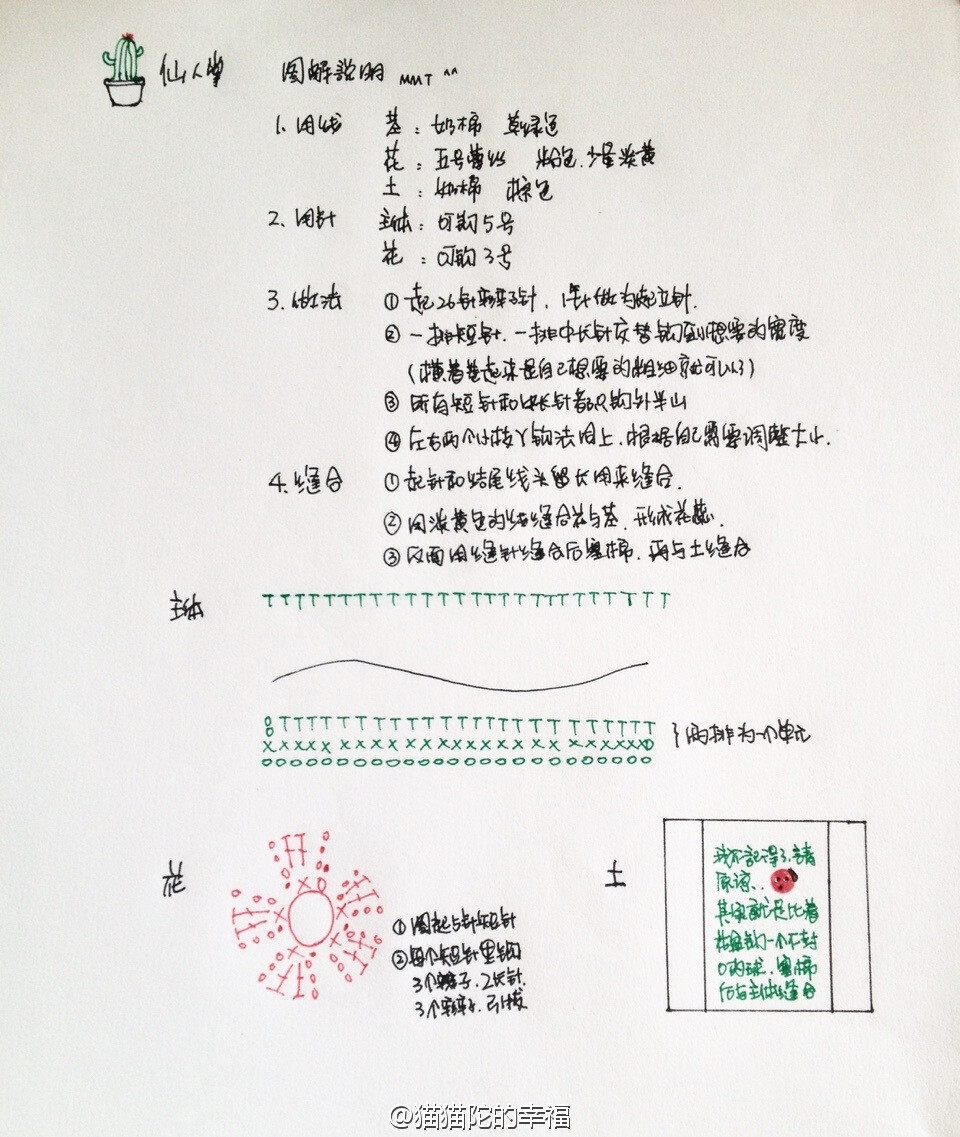 仙人掌 图解说明 MMT ^^
1. 用线 茎：奶棉 草绿色
花：五号蕾丝 粉色.少量淡黄
土：奶棉 棕色
2、用针 主体：可钩5号
花：可钩3号
3.做法 ①起26针辫子针，1针做为起立针.
②一排短针.一排中长针交替钩到想要的宽度
(横着卷起来是自己想要的粗细就可以了)
③所有短针和中长针都只钩外半山
④左右两个小枝丫钩法同上.根据自己需要调整大小.
4.缝合 ①起针和结尾线头留长用来缝合.
②用淡黄色的线缝合花与茎.形成花蕊.
③反面用缝针缝合后塞棉.再与土缝合
主体
两排为一个单元
花
①圈起5针短针
②每个短针里钩
3个辫子.2长针.
3个辫子.引拔
土
我不記得了.请
原谅..
其实就是比着
花盆钩一个不封
口的球.塞棉
后与主体缝合
@猫猫陀的幸福